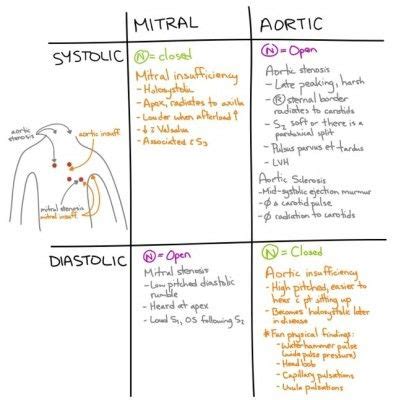 MITRAL
AORTIC
SYSTOLIC
Ⓝ = closed
Mitral insufficiency
- Holosystolic
- Apex, radiates to axilla
- Louder when afterload ↑
- ↓ c̄ Valsalva
- Associated c̄ S3
Ⓝ = Open
Aortic stenosis
- Late peaking, harsh
- Ⓡ sternal border
radiates to carotids
- S2 soft or there is a
paradoxical split
- Pulsus parvus et tardus
- LVH
Aortic Sclerosis
- Mid-systolic ejection murmur
- ∅ Δ carotid pulse
- ∅ radiation to carotids
aortic
stenosis
aortic insuff.
mitral stenosis
mitral insuff.
DIASTOLIC
Ⓝ = Open
Mitral stenosis
- Low pitched diastolic
rumble
- Heard at apex
- Loud S1, OS following S2
Ⓝ = Closed
Aortic insufficiency
- High pitched, easier to
hear c̄ pt sitting up
- Becomes holosystolic later
in disease
* Fun physical findings:
- Waterhammer pulse
(wide pulse pressure)
- Head bob
- Capillary pulsations
- Uvula pulsations